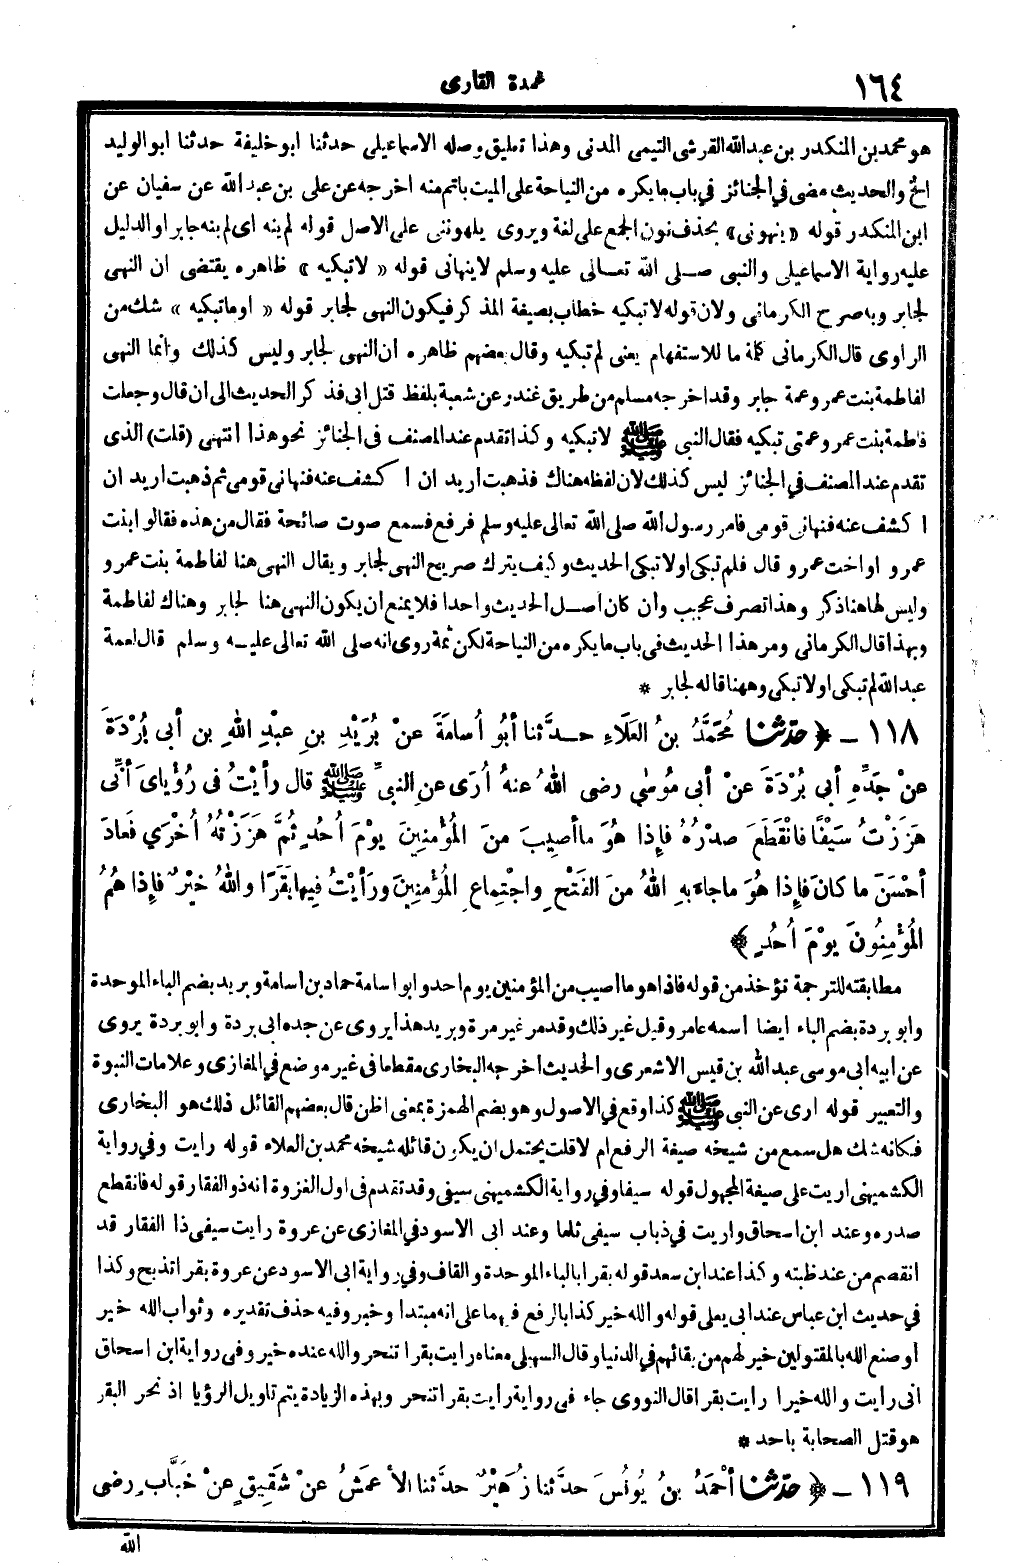 ١٦٤
عمدة القارى
هو محمد بن المنكدر بن عبدالله القرشى التيمى المدنى وهذا تعليق وصله الاسماعيلى حدثنا ابو خليفة حدثنا ابو الوليد
الخ والحديث مضى في الجنائز في باب ما يكره من النياحة على الميت باتم منه اخرجه عن على بن عبد الله عن سفيان عن
ابن المنكدر قوله «ينهونى» بحذف نون الجمع على لغة ويروى ينهوننى على الاصل قوله لم ينه اى لم ينه جابر او الدليل
عليه رواية الاسماعيلى والنبى صلى الله تعالى عليه وسلم لا ينهانى قوله «لاتبكيه» ظاهره يقتضى ان النهى
لجابر وبه صرح الكرمانى ولان قوله لا تبكيه خطاب بصيغة المذكر فيكون النهى لجابر قوله «اوماتبكيه» شك من
الراوى قال الكرمانى كلمة ما للاستفهام يعنى لم تبكيه وقال بعضهم ظاهره ان النهى لجابر وليس كذلك وانما النهى
لفاطمة بنت عمرو عمة جابر وقد اخرجه مسلم من طريق غندر عن شعبة بلفظ قتل ابى فذكر الحديث الى ان قال وجعلت
فاطمة بنت عمرو عمتى تبكيه فقال النبى ﷺ لا تبكيه وكذا تقدم عند المصنف فى الجنائز نحو هذا انتهى (قلت) الذى
تقدم عند المصنف في الجنائز ليس كذلك لان لفظه هناك فذهبت اريد ان اكشف عنه فنهانى قومى ثم ذهبت اريد ان
اكشف عنه فنهانى قومى فامر رسول الله صلى الله تعالى عليه وسلم فرفع فسمع صوت صائحة فقال من هذه فقالوا بنت
عمرو او اخت عمرو قال فلم تبكى اولا تبكى الحديث وكيف يترك صريح النهى لجابر ويقال النهى هنا لفاطمة بنت عمرو
وليس لها هنا ذكر وهذا تصرف عجيب وان كان اصل الحديث واحدا فلا يمنع ان يكون النهى هنا لجابر وهناك لفاطمة
وبهذا قال الكرمانى ومر هذا الحديث فى باب ما يكره من النياحة لكن ثمة روى انه صلى الله تعالى عليه وسلم قال لعمة
عبدالله لم تبكى اولا تبكى وههنا قاله لجابر *
١١٨ - ﴿ حَدَّثَنَا مُحَمَّدُ بنُ العَلَاءِ حدَّثنا أبُو أُسامَةَ عنْ بُرَيْدِ بنِ عبْدِ اللهِ بن أبى بُرْدَةَ
عنْ جَدِّهِ أبى بُرْدَةَ عنْ أبى مُوسٰى رضى اللهُ عنهُ أُرَى عنِ النبىِّ ﷺ قال رأيْتُ فى رُؤْياىَ أنِّى
هَزَزْتُ سَيْفًا فانْقَطَعَ صدْرُهُ فإذا هُوَ ما أصِيبَ منَ المُؤْمنِينَ يوْمَ أُحُدٍ ثُمَّ هَزَزْتُهُ أُخْرَي فَعادَ
أحْسَنَ ما كانَ فإِذا هُوَ ما جاءَ بهِ اللهُ منَ الفَتْحِ واجْتِماعِ المُؤْمنِينَ ورَأيْتُ فِيها بَقَرًا واللهُ خيْرٌ فإذا هُمُ
المُؤْمِنُونَ يوْمَ أُحُدٍ ﴾
مطابقته للترجمة تؤخذ من قوله فاذا هو ما اصيب من المؤمنين يوم احد وابو اسامة حماد بن اسامة وبريد بضم الباء الموحدة
وابو بردة بضم الباء ايضا اسمه عامر وقيل غير ذلك وقد مر غير مرة وبريد هذا يروى عن جده ابى بردة وابو بردة يروى
عن ابيه ابى موسى عبدالله بن قيس الاشعرى والحديث اخرجه البخارى مقطعا فى غير موضع في المغازى وعلامات النبوة
والتعبير قوله ارى عن النبى ﷺ كذا وقع في الاصول وهو بضم الهمزة بمعنى اظن قال بعضهم القائل ذلك هو البخارى
فكانه شك هل سمع من شيخه صيغة الرفع ام لا قلت يحتمل ان يكون قائله شيخه محمد بن العلاء قوله رايت وفي رواية
الكشميهنى اريت على صيغة المجهول قوله سيفا وفي رواية الكشميهنى سيفى وقد تقدم فى اول الغزوة انه ذوالفقار قوله فانقطع
صدره وعند ابن اسحاق واريت في ذباب سيفى ثلما وعند ابى الاسود في المغازى عن عروة رايت سيفى ذا الفقار قد
انقصم من عند ظبته وكذا عند ابن سعد قوله بقرا بالباء الموحدة والقاف وفي رواية ابى الاسود عن عروة بقرا تذبح وكذا
في حديث ابن عباس عند ابى يعلى قوله والله خير كذا بالرفع فيهما على انه مبتدا وخبر وفيه حذف تقديره وثواب الله خير
او صنع الله بالمقتولين خير لهم من بقائهم في الدنيا وقال السهيلى معناه رايت بقرا تنحر والله عنده خير وفى رواية ابن اسحاق
انى رايت والله خيرا رايت بقرا قال النووى جاء فى رواية رايت بقرا تنحر وبهذه الزيادة يتم تاويل الرؤيا اذ نحر البقر
هو قتل الصحابة باحد *
١١٩ - ﴿ حَدَّثَنَا أحْمَدُ بنُ يُونُسَ حدَّثنا زُهَيْرٌ حدَّثنا الأعمَشُ عنْ شَقيِقٍ عنْ خَبَّابٍ رضى
الله